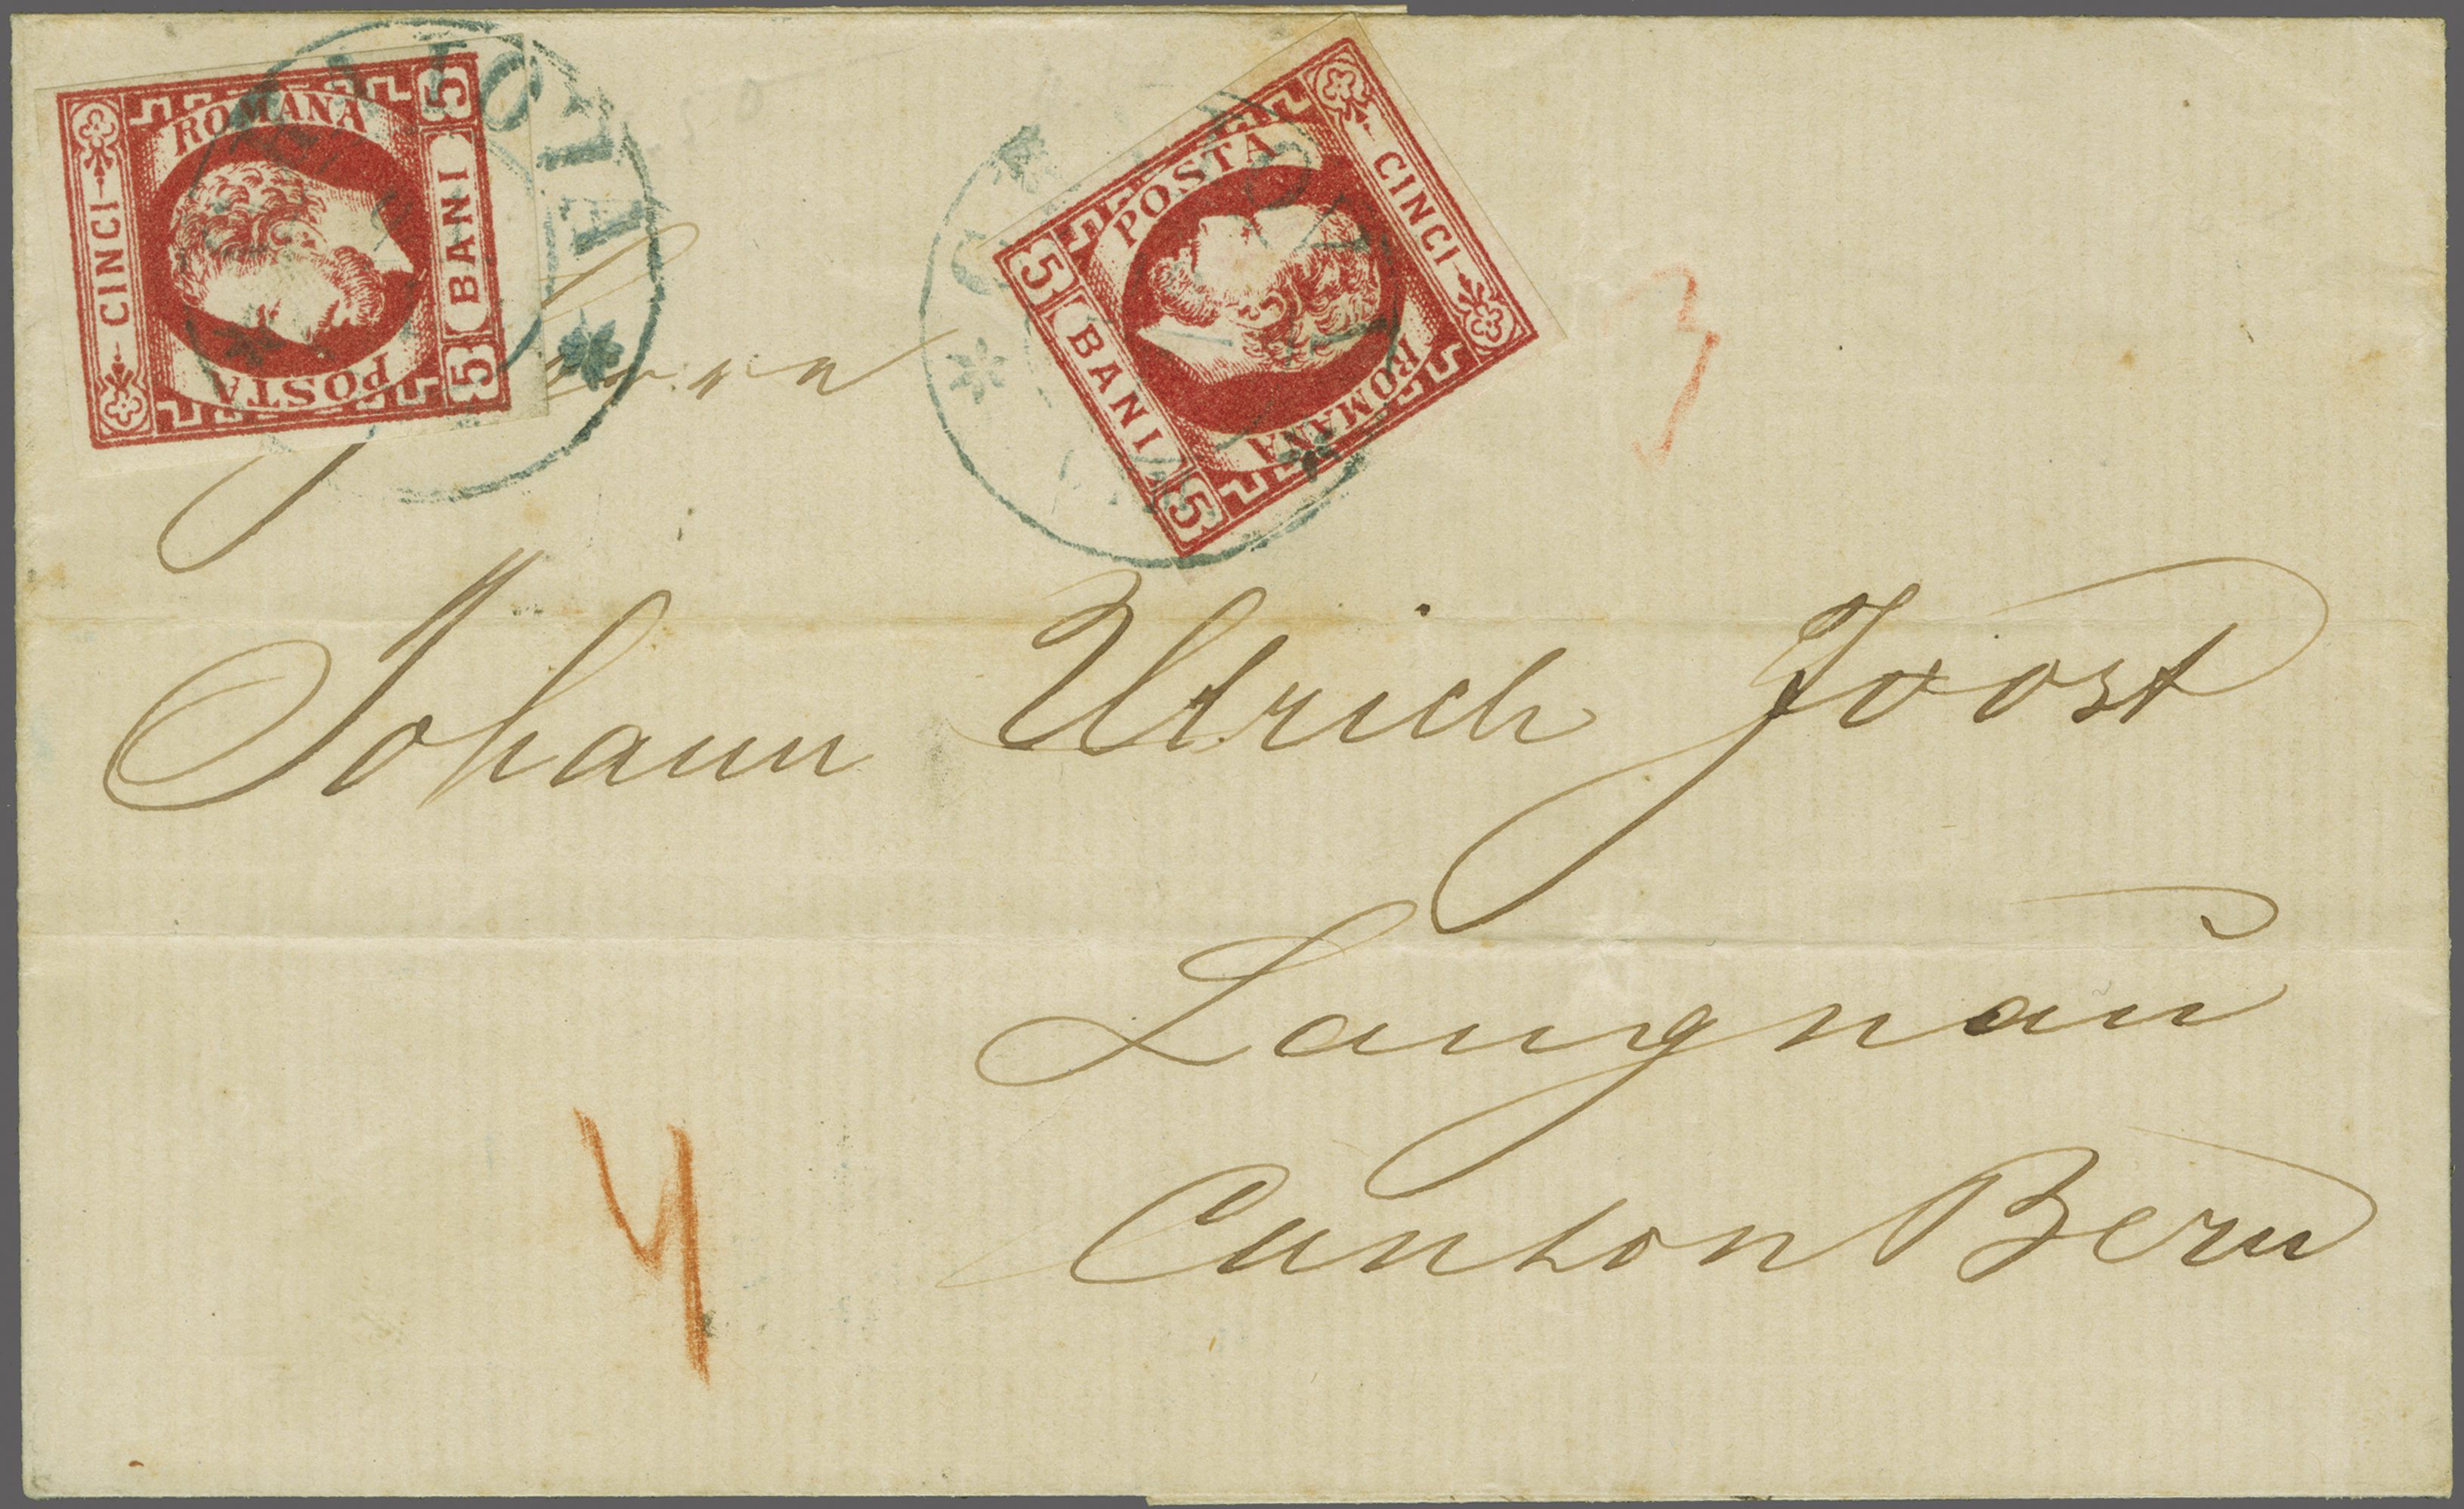 5 BANI 5
CINCI
POSTA
ROMANA
5 BANI 5
CINCI
POSTA
ROMANA
3
Johann Ulrich Joost
Langnau
Canton Bern
4